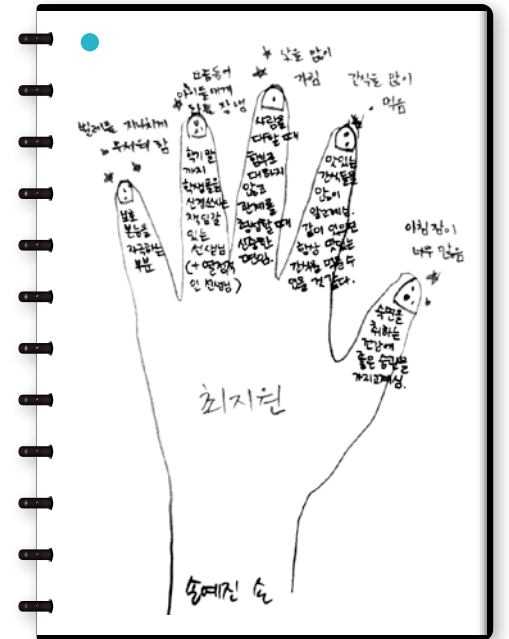 벌레를 지나치게
무서워 함
보호
본능을
자극하는
부분
모둠동어
아이들에게
화를 잘 냄
학기 말
까지
학생들을
신경쓰시는
책임감
있는
선생님
(+ 열정적
인 선생님)
낯을 많이
가림
사람을
대할 때
함부로
대하지
않고
관계를
형성할 때
신중한
편임.
간식을 많이
먹음
맛있는
간식들을
많이
알고계심.
같이 있으면
항상 맛있는
간식을 먹을 수
있을 것 같다.
아침잠이
너무 많음
숙면을
취하는
건강에
좋은 습관을
가지고계심.
최지원
손예진 손